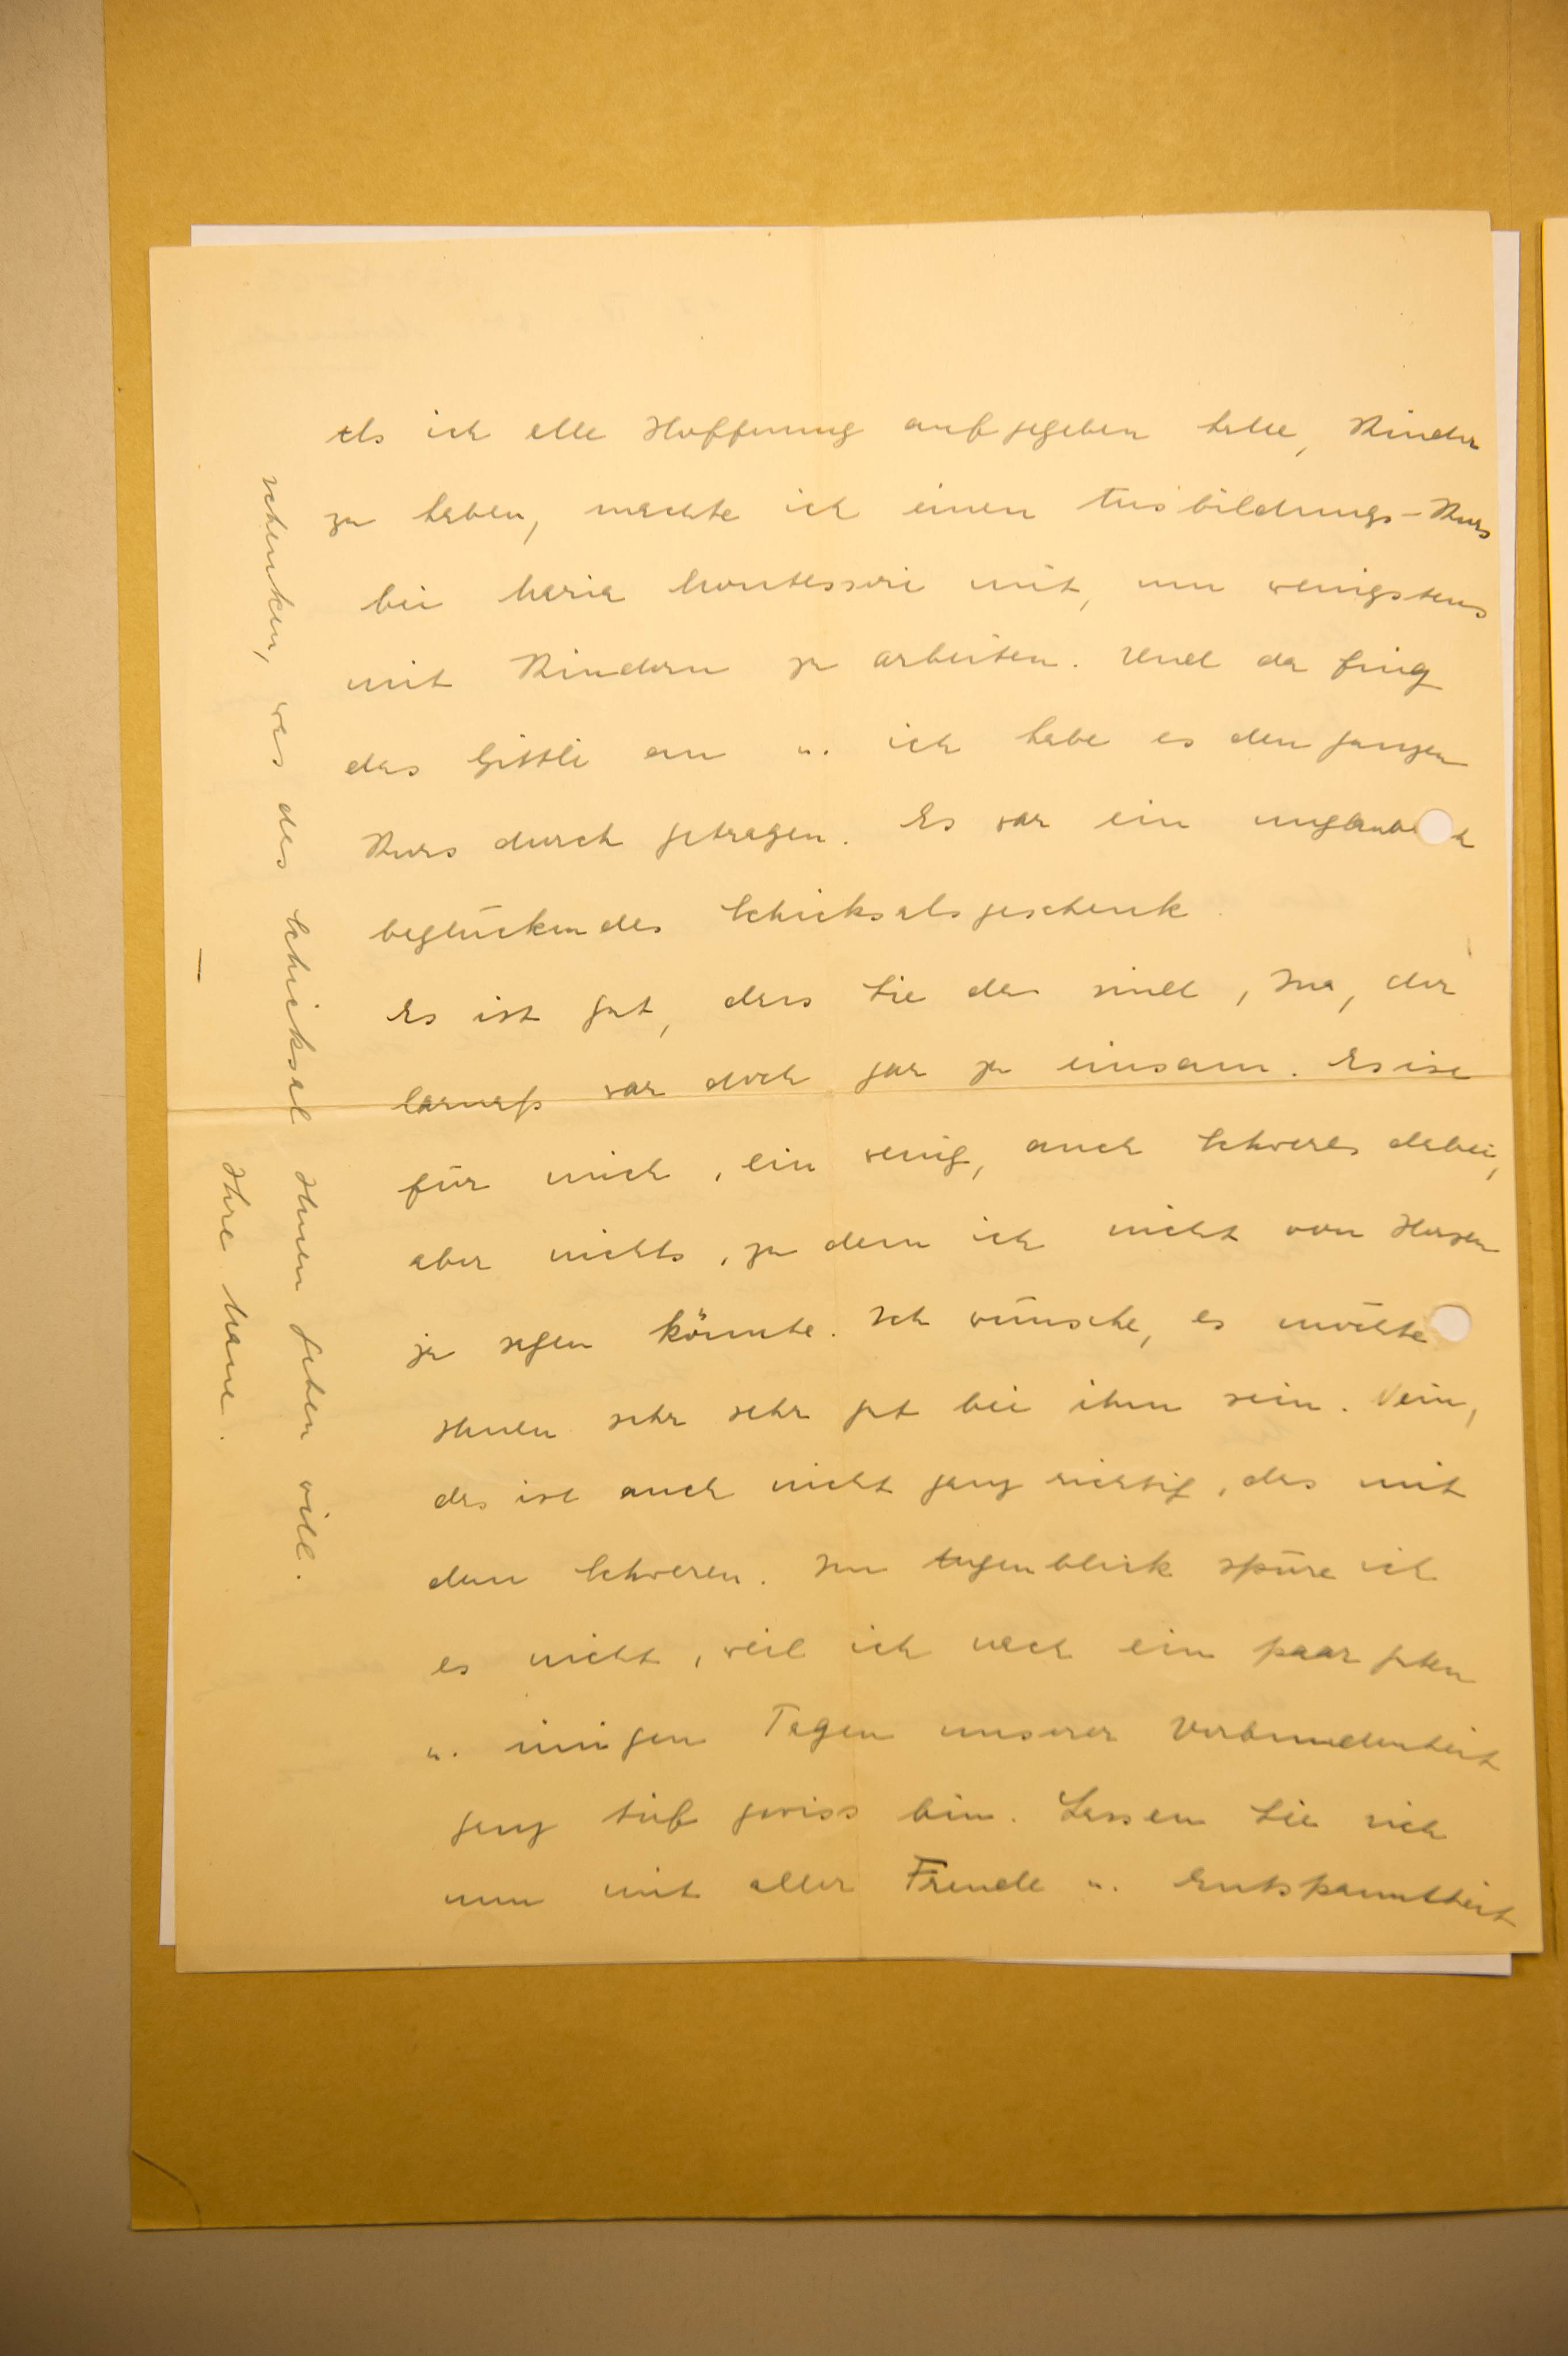 Als ich alle Hoffnung aufgegeben hatte, Kinder
zu haben, machte ich einen Ausbildungs-Kurs
bei Maria Montessori mit, um wenigstens
mit Kindern zu arbeiten. Und da fing
das Gittli an u. ich habe es den ganzen
Kurs durch getragen. Es war ein unglaublich
beglückendes Schicksalsgeschenk.
Es ist gut, dass Sie da sind, Ina, der
war doch gar zu einsam. Es ist
für mich, ein wenig, auch Schweres dabei,
aber nichts, zu dem ich nicht von Herzen
ja sagen könnte. Ich wünsche, es möchte
Ihnen sehr sehr gut bei ihm sein. Nein,
das ist auch nicht ganz richtig, das mit
dem Schweren. Im Augenblick spüre ich
es nicht, weil ich nach ein paar guten
u. innigen Tagen unserer Verbundenheit
ganz tief gewiss bin. Lassen Sie sich
nun mit aller Freude u. Entspanntheit
schenken, was das Schicksal Ihnen geben will.
Ihre